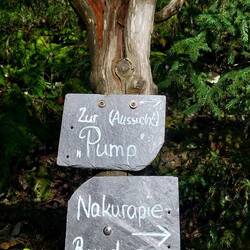 Zur (Aussicht)
„Pump"
Nakurapie